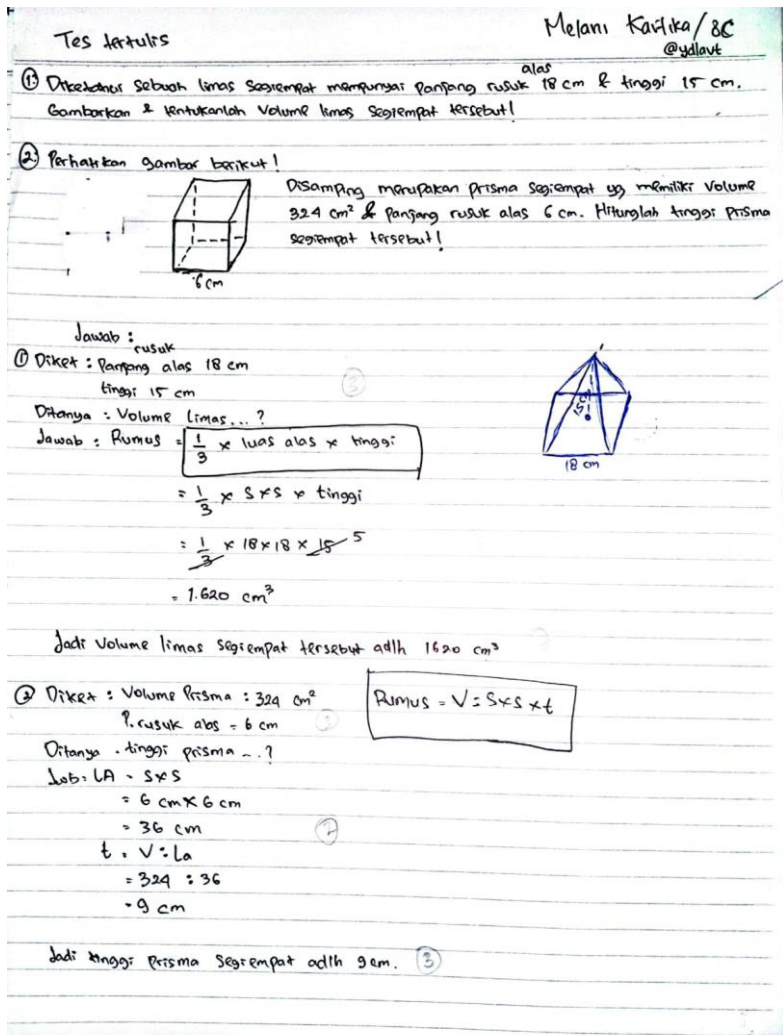 Tes tertulis
Melani Kartika / 8C
@ydlavt
① Diketahui sebuah limas segiempat mempunyai panjang rusuk alas 18 cm & tinggi 15 cm.
Gambarkan & tentukanlah Volume limas segiempat tersebut!
② Perhatikan gambar berikut!
Disamping merupakan prisma segiempat yg memiliki volume
324 cm² & panjang rusuk alas 6 cm. Hitunglah tinggi prisma
segiempat tersebut!
6 cm
Jawab :
① Diket : Panjang rusuk alas 18 cm
tinggi 15 cm
③
Ditanya : Volume limas... ?
Jawab : Rumus = 1/3 × luas alas × tinggi
= 1/3 × s×s × tinggi
= 1/3 × 18×18 × 15 5
= 1.620 cm³
15 cm
18 cm
Jadi Volume limas segiempat tersebut adlh 1620 cm³
② Diket : Volume Prisma : 324 cm²
P. rusuk alas = 6 cm
Rumus = V = s×s×t
Ditanya . tinggi prisma ...?
Job : LA = s×s
= 6 cm × 6 cm
= 36 cm
②
t = V : La
= 324 : 36
= 9 cm
Jadi tinggi prisma segiempat adlh 9 cm. ③